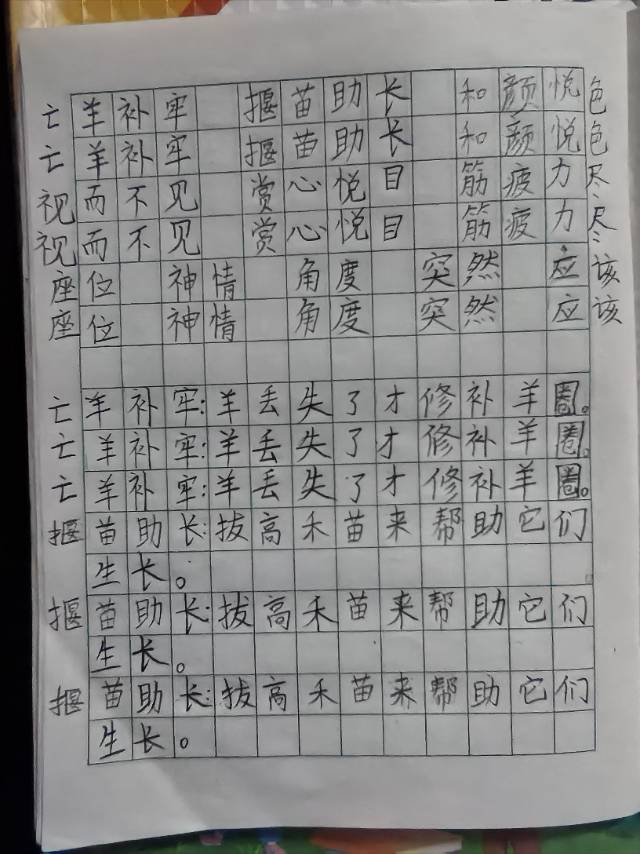 亡羊补牢 揠苗助长 和颜悦色
亡羊补牢 揠苗助长 和颜悦色
视而不见 赏心悦目 筋疲力尽
视而不见 赏心悦目 筋疲力尽
座位 神情 角度 突然 应该
座位 神情 角度 突然 应该
亡羊补牢:羊丢失了才修补羊圈。
亡羊补牢:羊丢失了才修补羊圈。
亡羊补牢:羊丢失了才修补羊圈。
揠苗助长:拔高禾苗来帮助它们
生长。
揠苗助长:拔高禾苗来帮助它们
生长。
揠苗助长:拔高禾苗来帮助它们
生长。